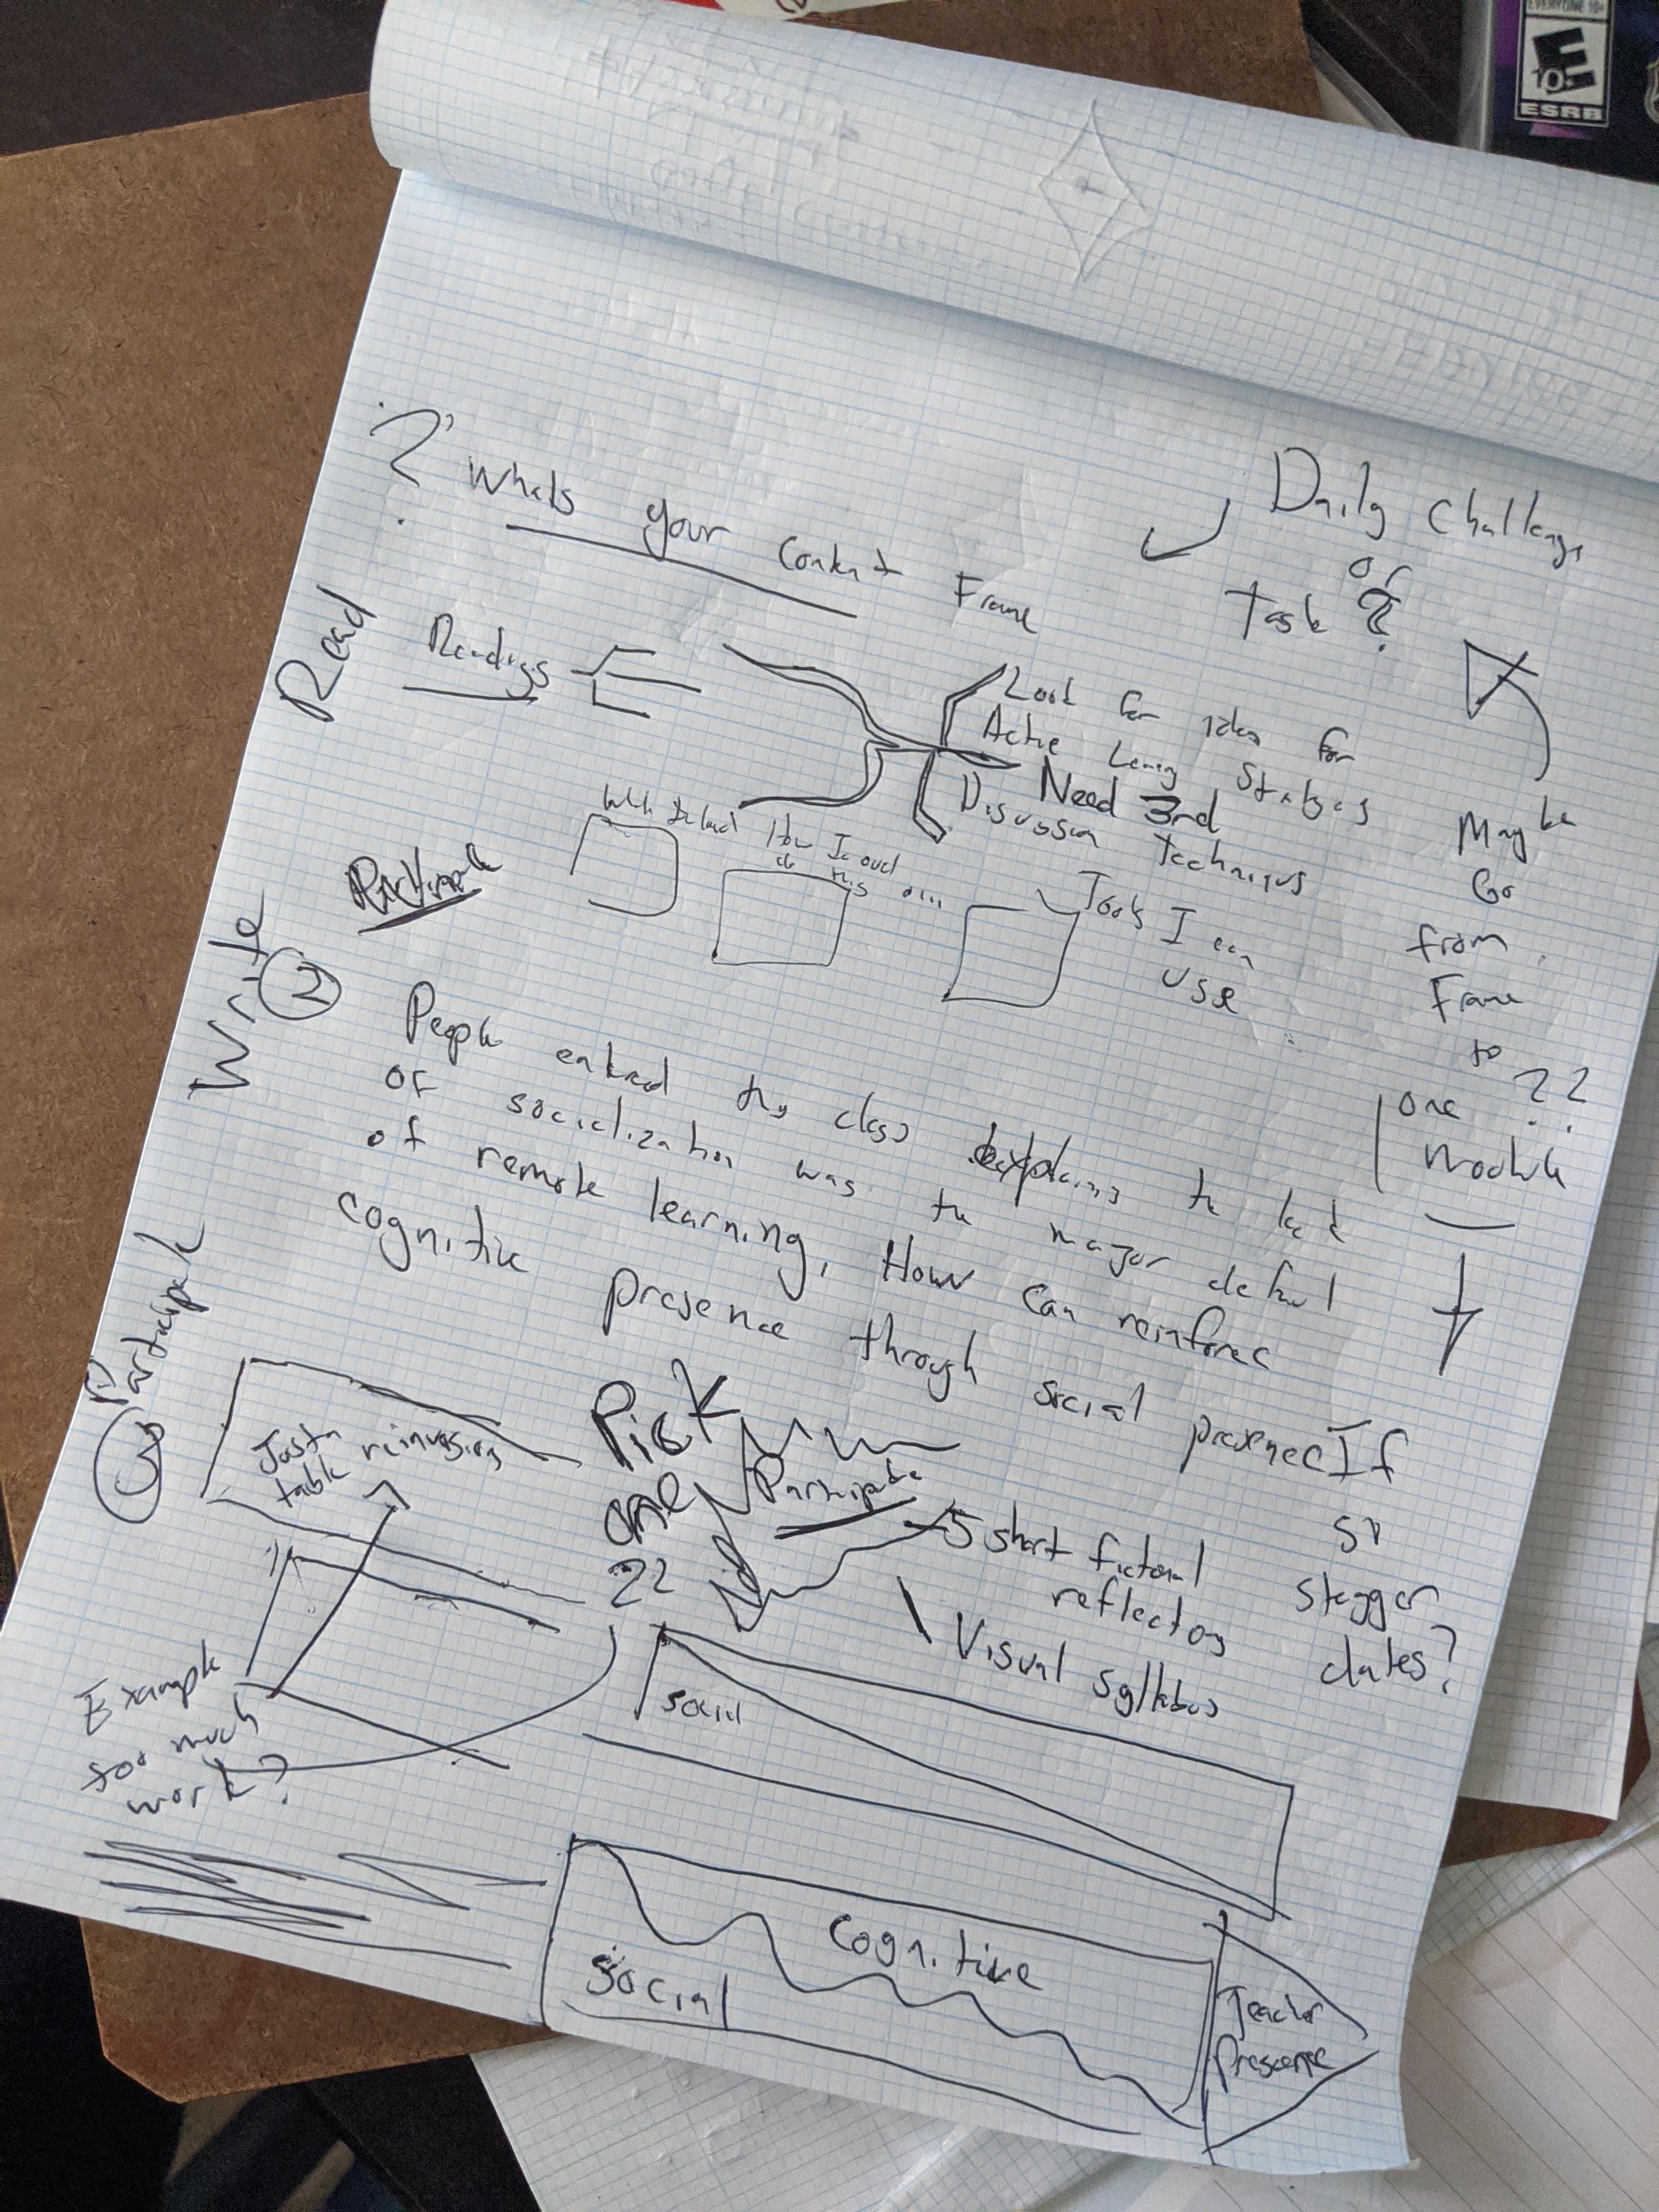 EVERYONE 10+
E
10+
ESRB
? Whats your Content Frame
Daily Challenge
or
Task ?
Read
Readings
Look for ideas for
Active Learning
Need 3rd
Discussion techniques
How I could
do this
Tools I can
use
Maybe
Go
from
Frame
to ??
one
module
Write
2
Participate
People entered this class explaining the lack
of socialization was the major
of remote learning, How can reinforce
cognitive presence through social presence
If
so
stagger
dates?
3 Participate
table
Pick
one
??
Participate
5 short fictional
Visual Syllabus
Example
too much
work?
Social
Social
Cognitive
Teacher
Prescence